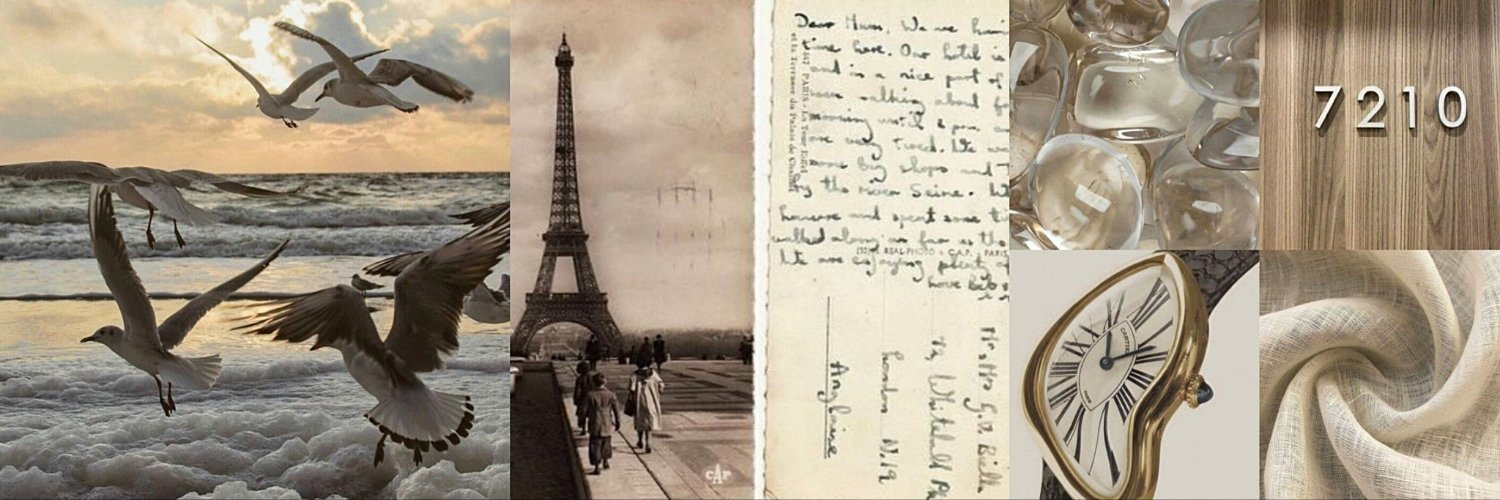 Dear Mum, We are havi
time here. Our hotel is
and in a nice part of
been walking about f
morning until 6 p.m. an
are very tired. We we
some big shops and
by the River Seine. W
and spent some ti
walked along as far as the
We are enjoying plenty o
have
447 PARIS - La Tour Eiffel
et la Terrasse du Palais de Chaillot
REAL-PHOTO - C.A.P. - PARIS
Mr & Mrs G.
Whitehall P
London N.19
Angleterre
CAP
7210
CARTIER